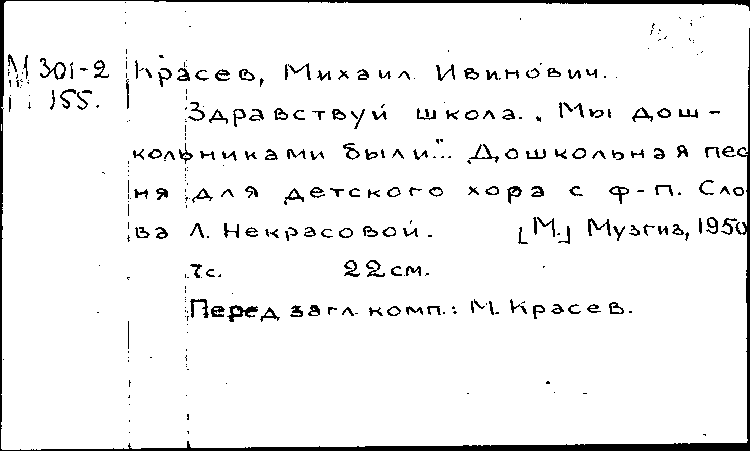 М 301-2 Красев, Михаил Ивинович.
155.
Здравствуй школа. „Мы дош-
кольниками были"... Дошкольная пес
ня для детского хора с ф-п. Сло
ва Л. Некрасовой. [М.] Музгиз, 1950
7с. 22см.
Перед загл. комп.: М. Красев.